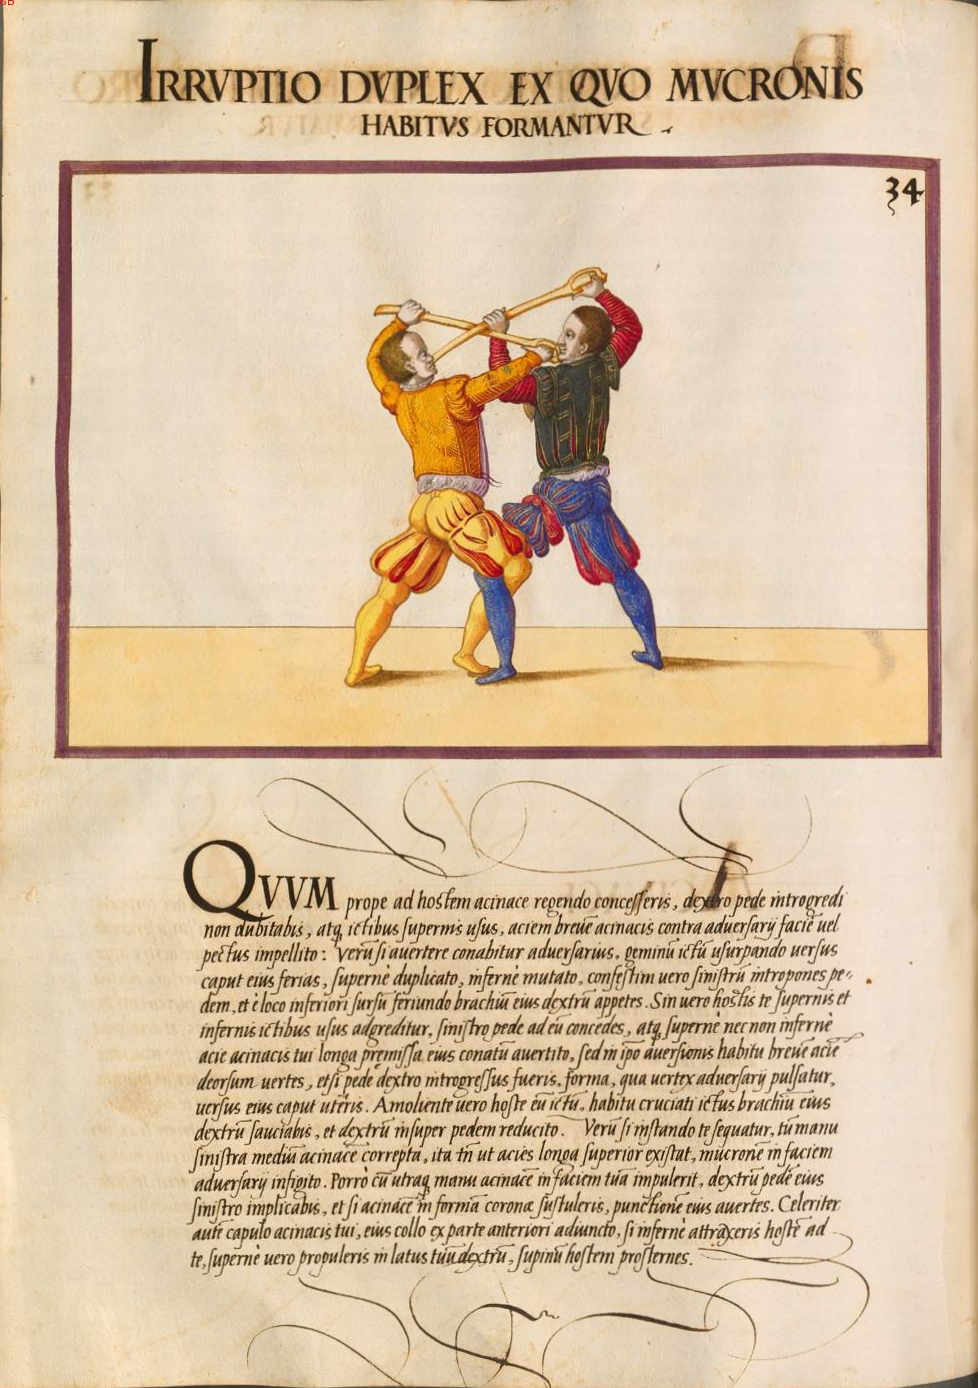 IRRVPTIO DVPLEX EX QVO MVCRONIS
HABITVS FORMANTVR
34
QVVM prope ad hostem acinace regendo concesseris, dextro pede introgredi
non dubitabis, atq ictibus supernis usus, aciem breuē acinacis contra aduersarij faciē uel
pectus impellito: verū si auertere conabitur aduersarius, geminū ictū usurpando uersus
caput eius ferias, supernè duplicato, infernè mutato, confestim uero sinistrū intropones pe-
dem, et è loco inferiori sursū feriundo brachiū eius dextrū appetes. Sin uero hostis te supernis et
infernis ictibus usus adgreditur, sinistro pede ad eū concedes, atq supernè nec non infernè
acie acinacis tui longa premissa eius conatū auertito, sed in ipo auersionis habitu breuē aciē
deorsum uertes, et si pede dextro introgressus fueris, forma, qua uertex aduersarij pulsatur,
uersus eius caput utēris. Amoliente uero hoste eū ictū, habitu cruciati ictus brachiū eius
dextrū sauciabis, et dextrū insuper pedem reducito. Verū si instando te sequatur, tū manu
sinistra mediā acinacē correpta, ita tn ut acies longa superior existat, mucronē in faciem
aduersarij infigito. Porrò cū utraq manu acinacē in faciem tuā impulerit, dextrū pedē eius
sinistro implicabis, et si acinacē in formā coronæ sustuleris, punctionē eius auertes. Celeriter
autē capulo acinacis tui, eius collo ex parte anteriori adiuncto, si infernè attraxeris hostē ad
te, supernè uero propuleris in latus tuū dextrū, supinū hostem prosternes.